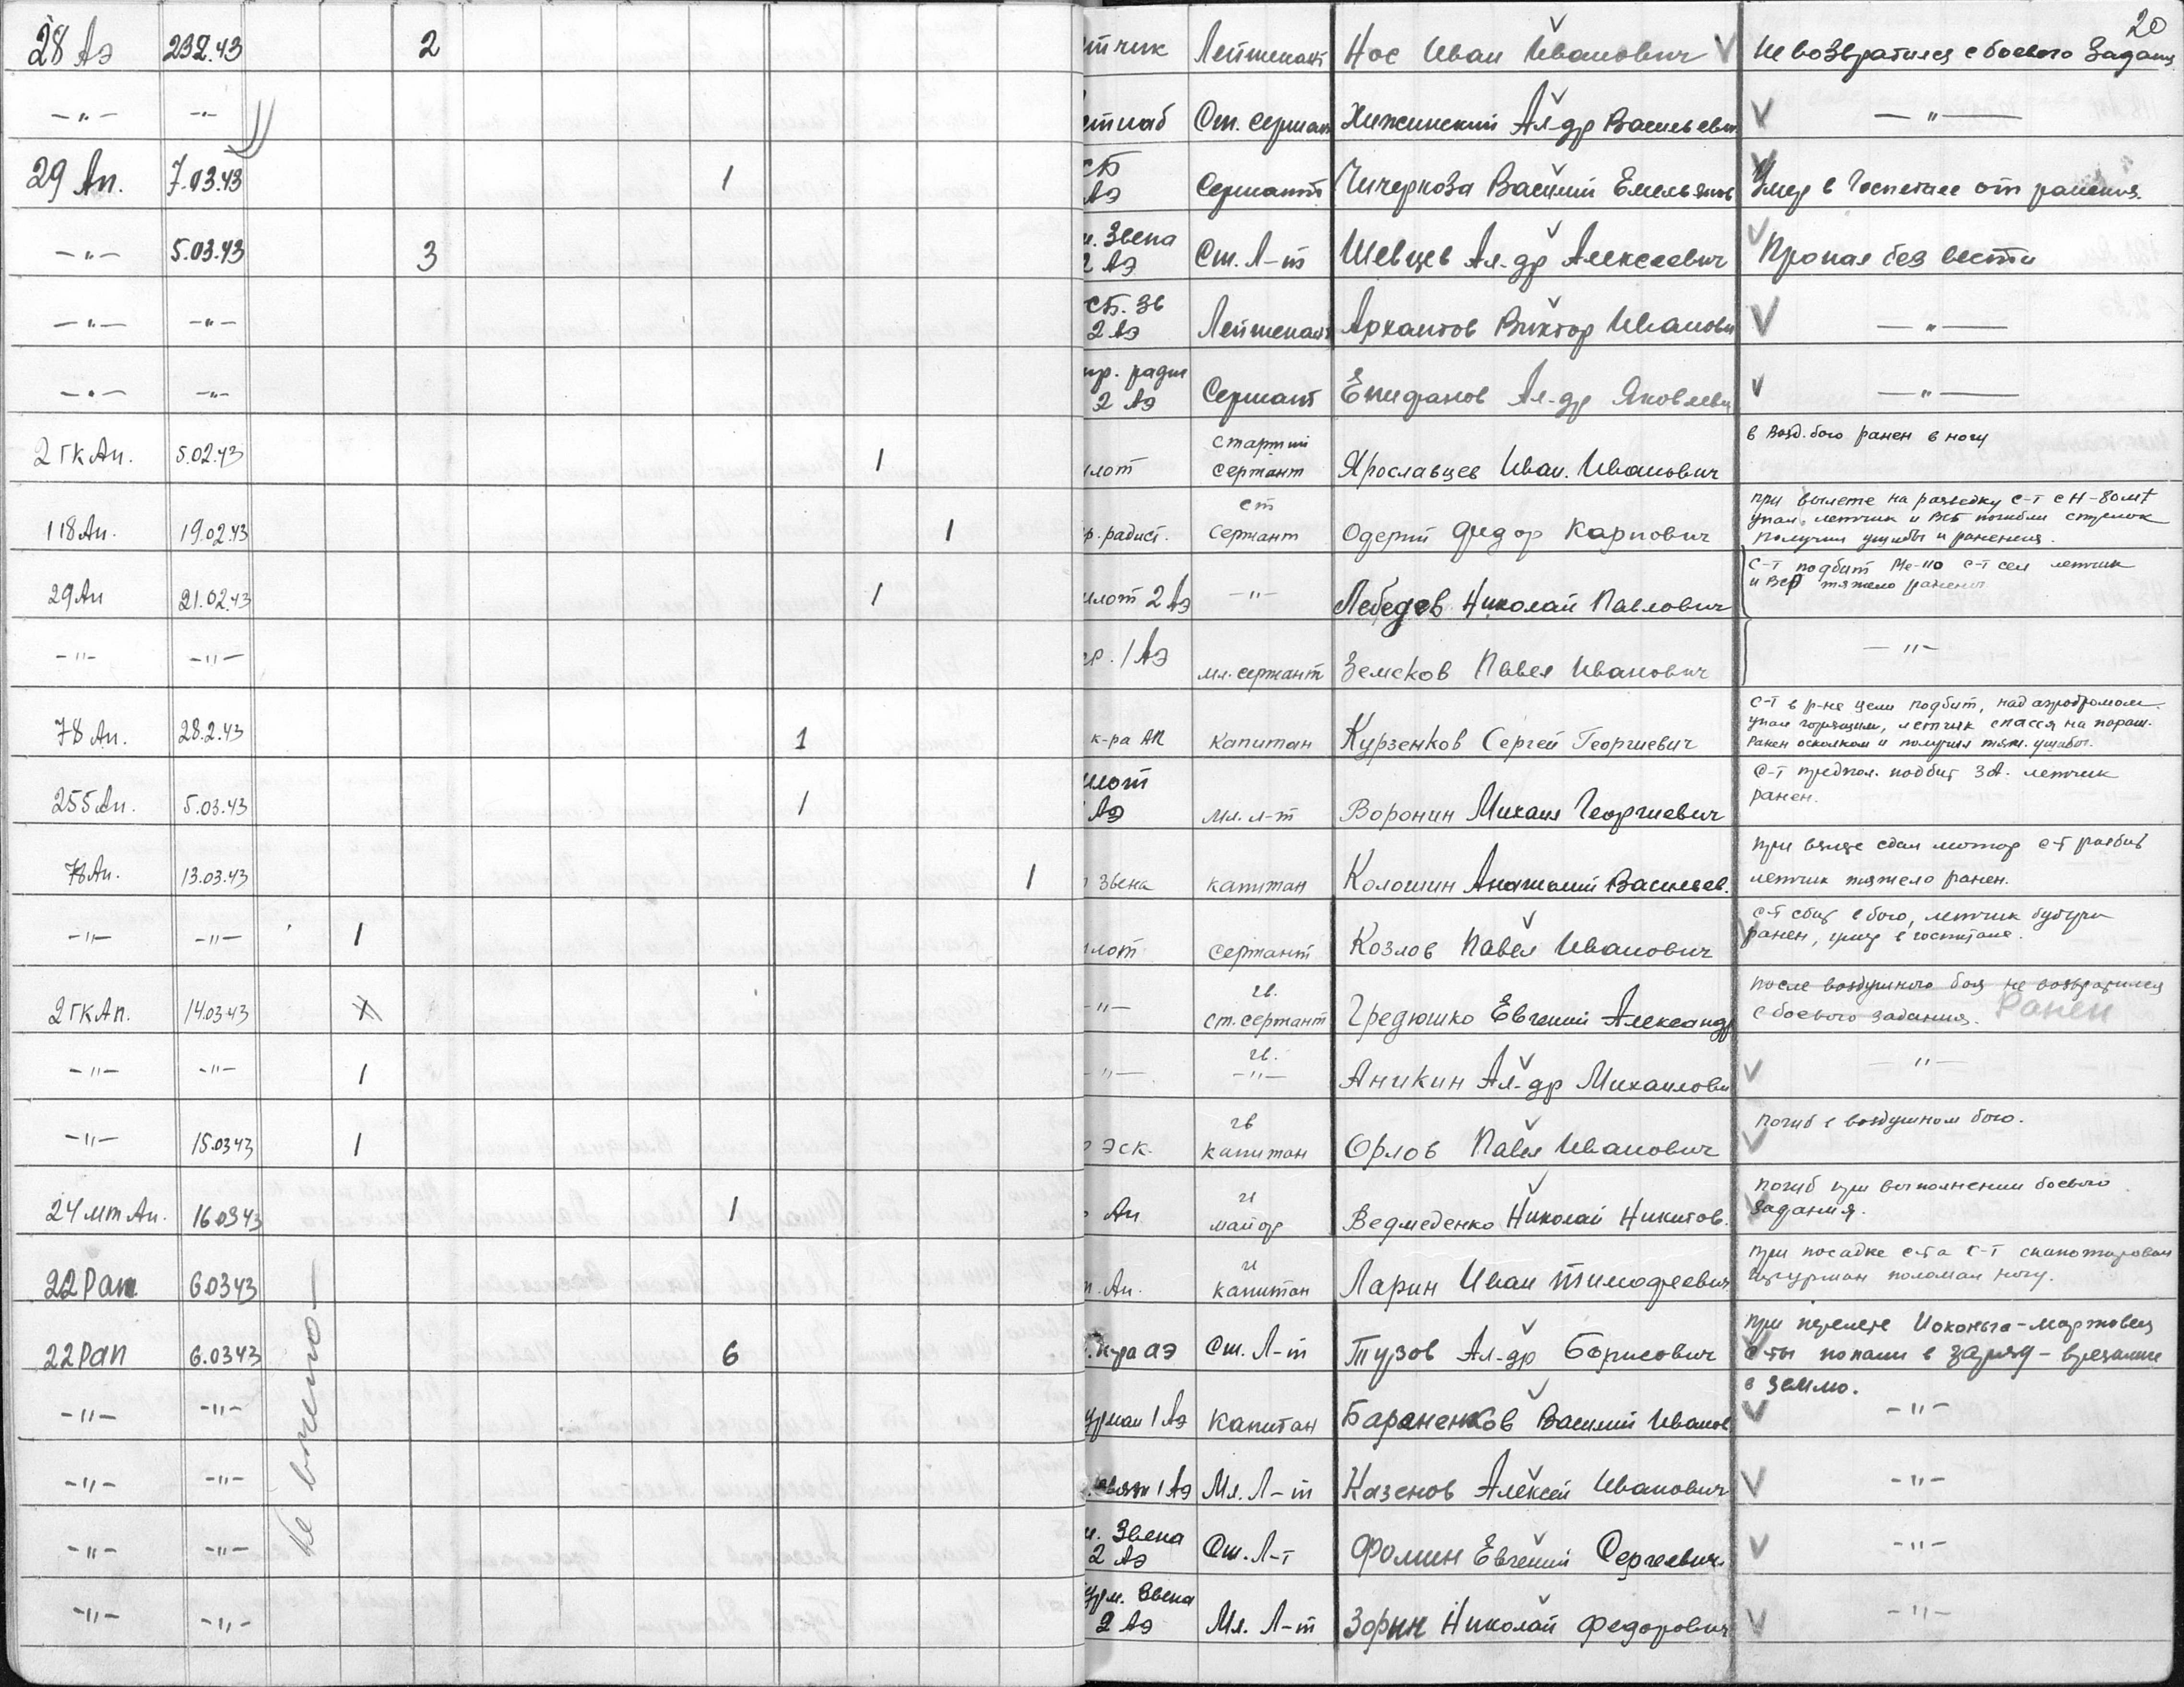 20
28 Аэ 23.2.43 2 тчик Лейтенант Нос Иван Иванович Не возвратился с боевого задания
-"- -"- Ст. сержант Хижинский Ал-др Васильевич -"-
29 Ап. 7.03.43 1 СБ АЭ Сержант Василий Емельянов Умер в Госпетале от ранения.
-"- 5.03.43 3 Звена 2 АЭ Ст. Л-т Шевцев Ал-др Алексеевич Пропал без вести
-"- -"- СБ. Зв 2 Аэ Лейтенант Архантов Виктор Иванови -"-
-"- -"- р. ради 2 Аэ Сержант Епифанов Ал-др Яковлеви -"-
2 гк Ап. 5.02.43 1 лот старший сержант Ярославцев Иван Иванович в возд. бою ранен в ногу
118 Ап. 19.02.43 1 р. радист. ст сержант Одерий Фидор Карпович при вылете на разведку с-т с Н-80мт
упал, летчик и погибли стрелок
получил ушибы и ранения.
29 Ап 21.02.43 1 лот 2 Аэ -"- Лебедев Николай Павлович С-т подбит Ме-110 с-т сел летчик
и тяжело ранены
-"- -"- 1 Аэ мл. сержант Земсков Павел Иванович -"-
78 Ап. 28.2.43 1 к-ра АП капитан Курзенков Сергей Георгиевич с-т в р-не цели подбит, над аэродромом
упал горящим, летчик спасся на параш.
Ранен осколком и получил тяж. ушибы.
255 Ап. 5.03.43 1 лот Аэ мл. л-т Воронин Михаил Георгиевич с-т предпол. подбит ЗА. летчик
ранен.
78 Ап. 13.03.43 1 звена капитан Колошин Анатолий Васильев. при взлете сдал мотор с-т разбит
летчик тяжело ранен.
-"- -"- 1 лот сержант Козлов Павел Иванович с-т сбит в бою, летчик будучи
ранен, умер в госпитале.
2 гк Ап. 14.03.43 1 -"- гв. ст. сержант Гредюшко Евгений Александр после воздушного боя не возвратился
с боевого задания. Ранен
-"- -"- 1 -"- гв. -"- Аникин Ал-др Михаилови -"-
-"- 15.03.43 1 эск. гв капитан Орлов Павел Иванович погиб в воздушном бою.
24 мт Ап. 16.03.43 1 Ап майор Ведмеденко Николай Никитов. погиб при выполнении боевого
задания.
22 Рап 6.03.43 Ап. капитан Ларин Иван Тимофеевич при посадке с-та с-т скапотировал
штурман поломал ногу.
22 Рап 6.03.43 6 к-ра аэ Ст. Л-т Тузов Ал-др Борисович при перелете Иоканьга-
с-ты попали в заряд - врезались
в землю.
-"- -"- урман 1 Аэ Капитан Бараненков Василий Иванов -"-
-"- -"- связи 1 Аэ Мл. Л-т Казенов Алексей Иванович -"-
-"- -"- Звена 2 Аэ Ст. Л-т Фомин Евгений Сергеевич -"-
-"- -"- урм. Звена 2 Аэ Мл. Л-т Зорин Николай Федорович -"-
Не включено